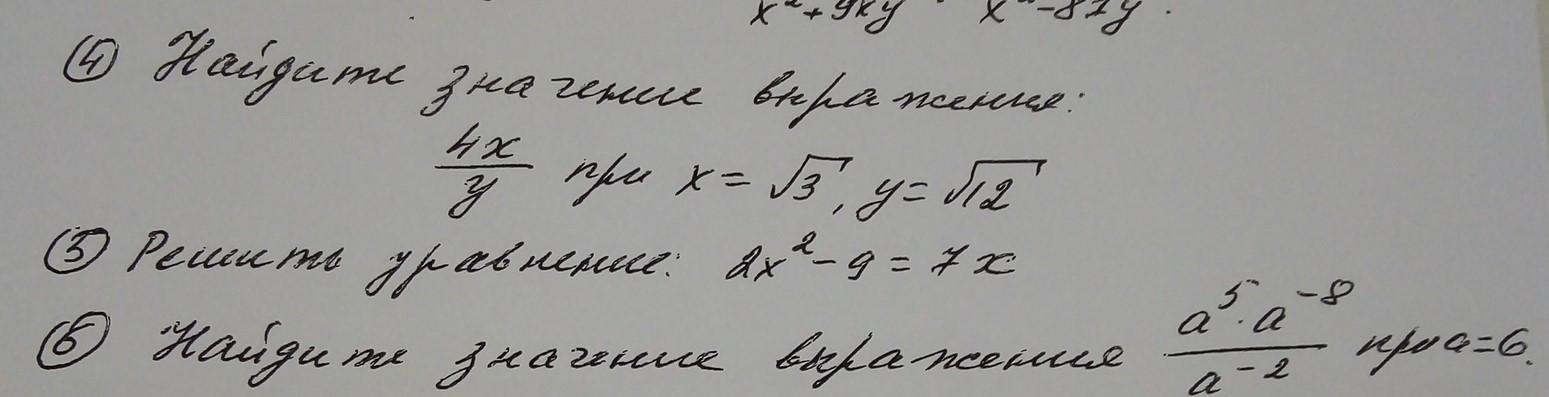 x²+9xy x²-81y
④ Найдите значение выражения:
4x/y при x = √3, y = √12
⑤ Решить уравнение: 2x² - 9 = 7x
⑥ Найдите значение выражения a⁵·a⁻⁸/a⁻² при a=6.